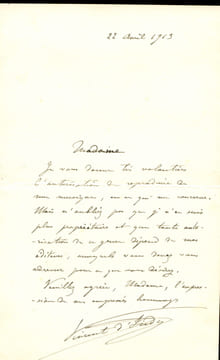 22 Avril 1903
Madame
Je vous donne très volontiers
l'autorisation de reproduire de
ma musique, en ce qui me concerne.
Mais n'oubliez pas que je n'en suis
plus propriétaire et que toute auto-
risation de ce genre dépend de mes
éditeurs, auxquels vous devez vous
adresser pour ce que vous désirez.
Veuillez agréer, Madame, l'expres-
sion de mes empressés hommages
Vincent d'Indy